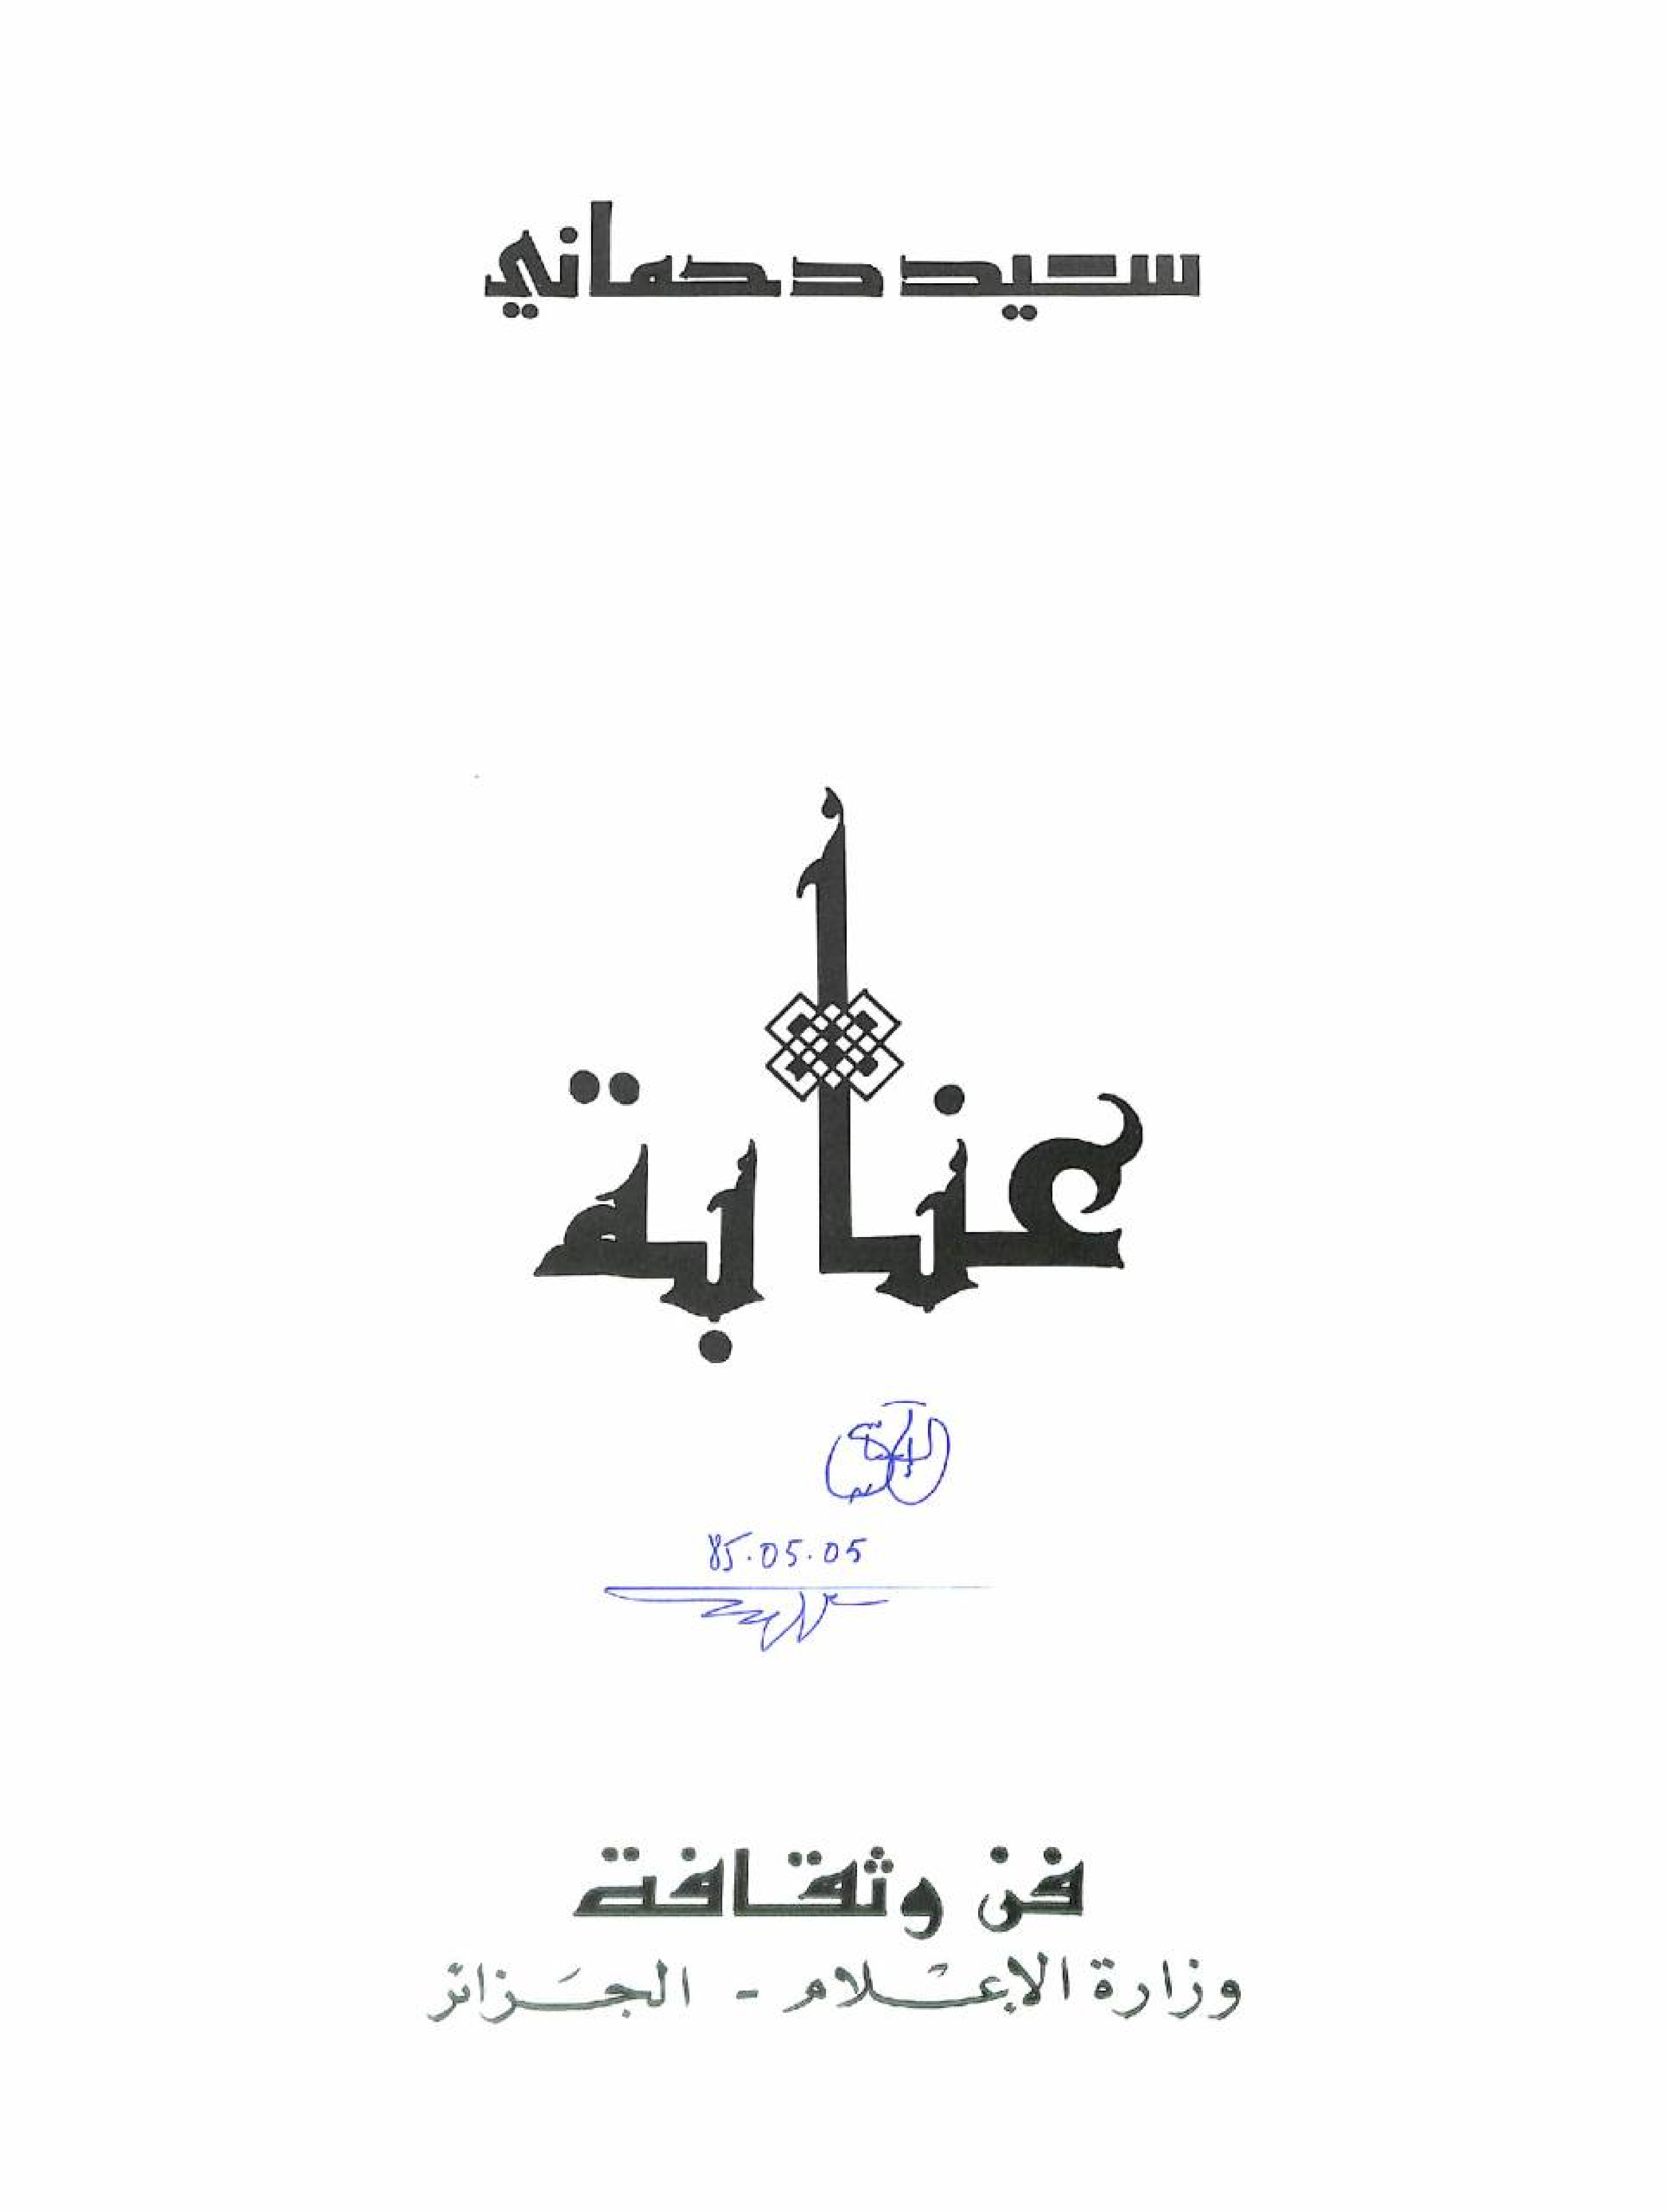 سعيد دحماني
عنابة
85.05.05
فن وثقافة
وزارة الإعلام - الجزائر